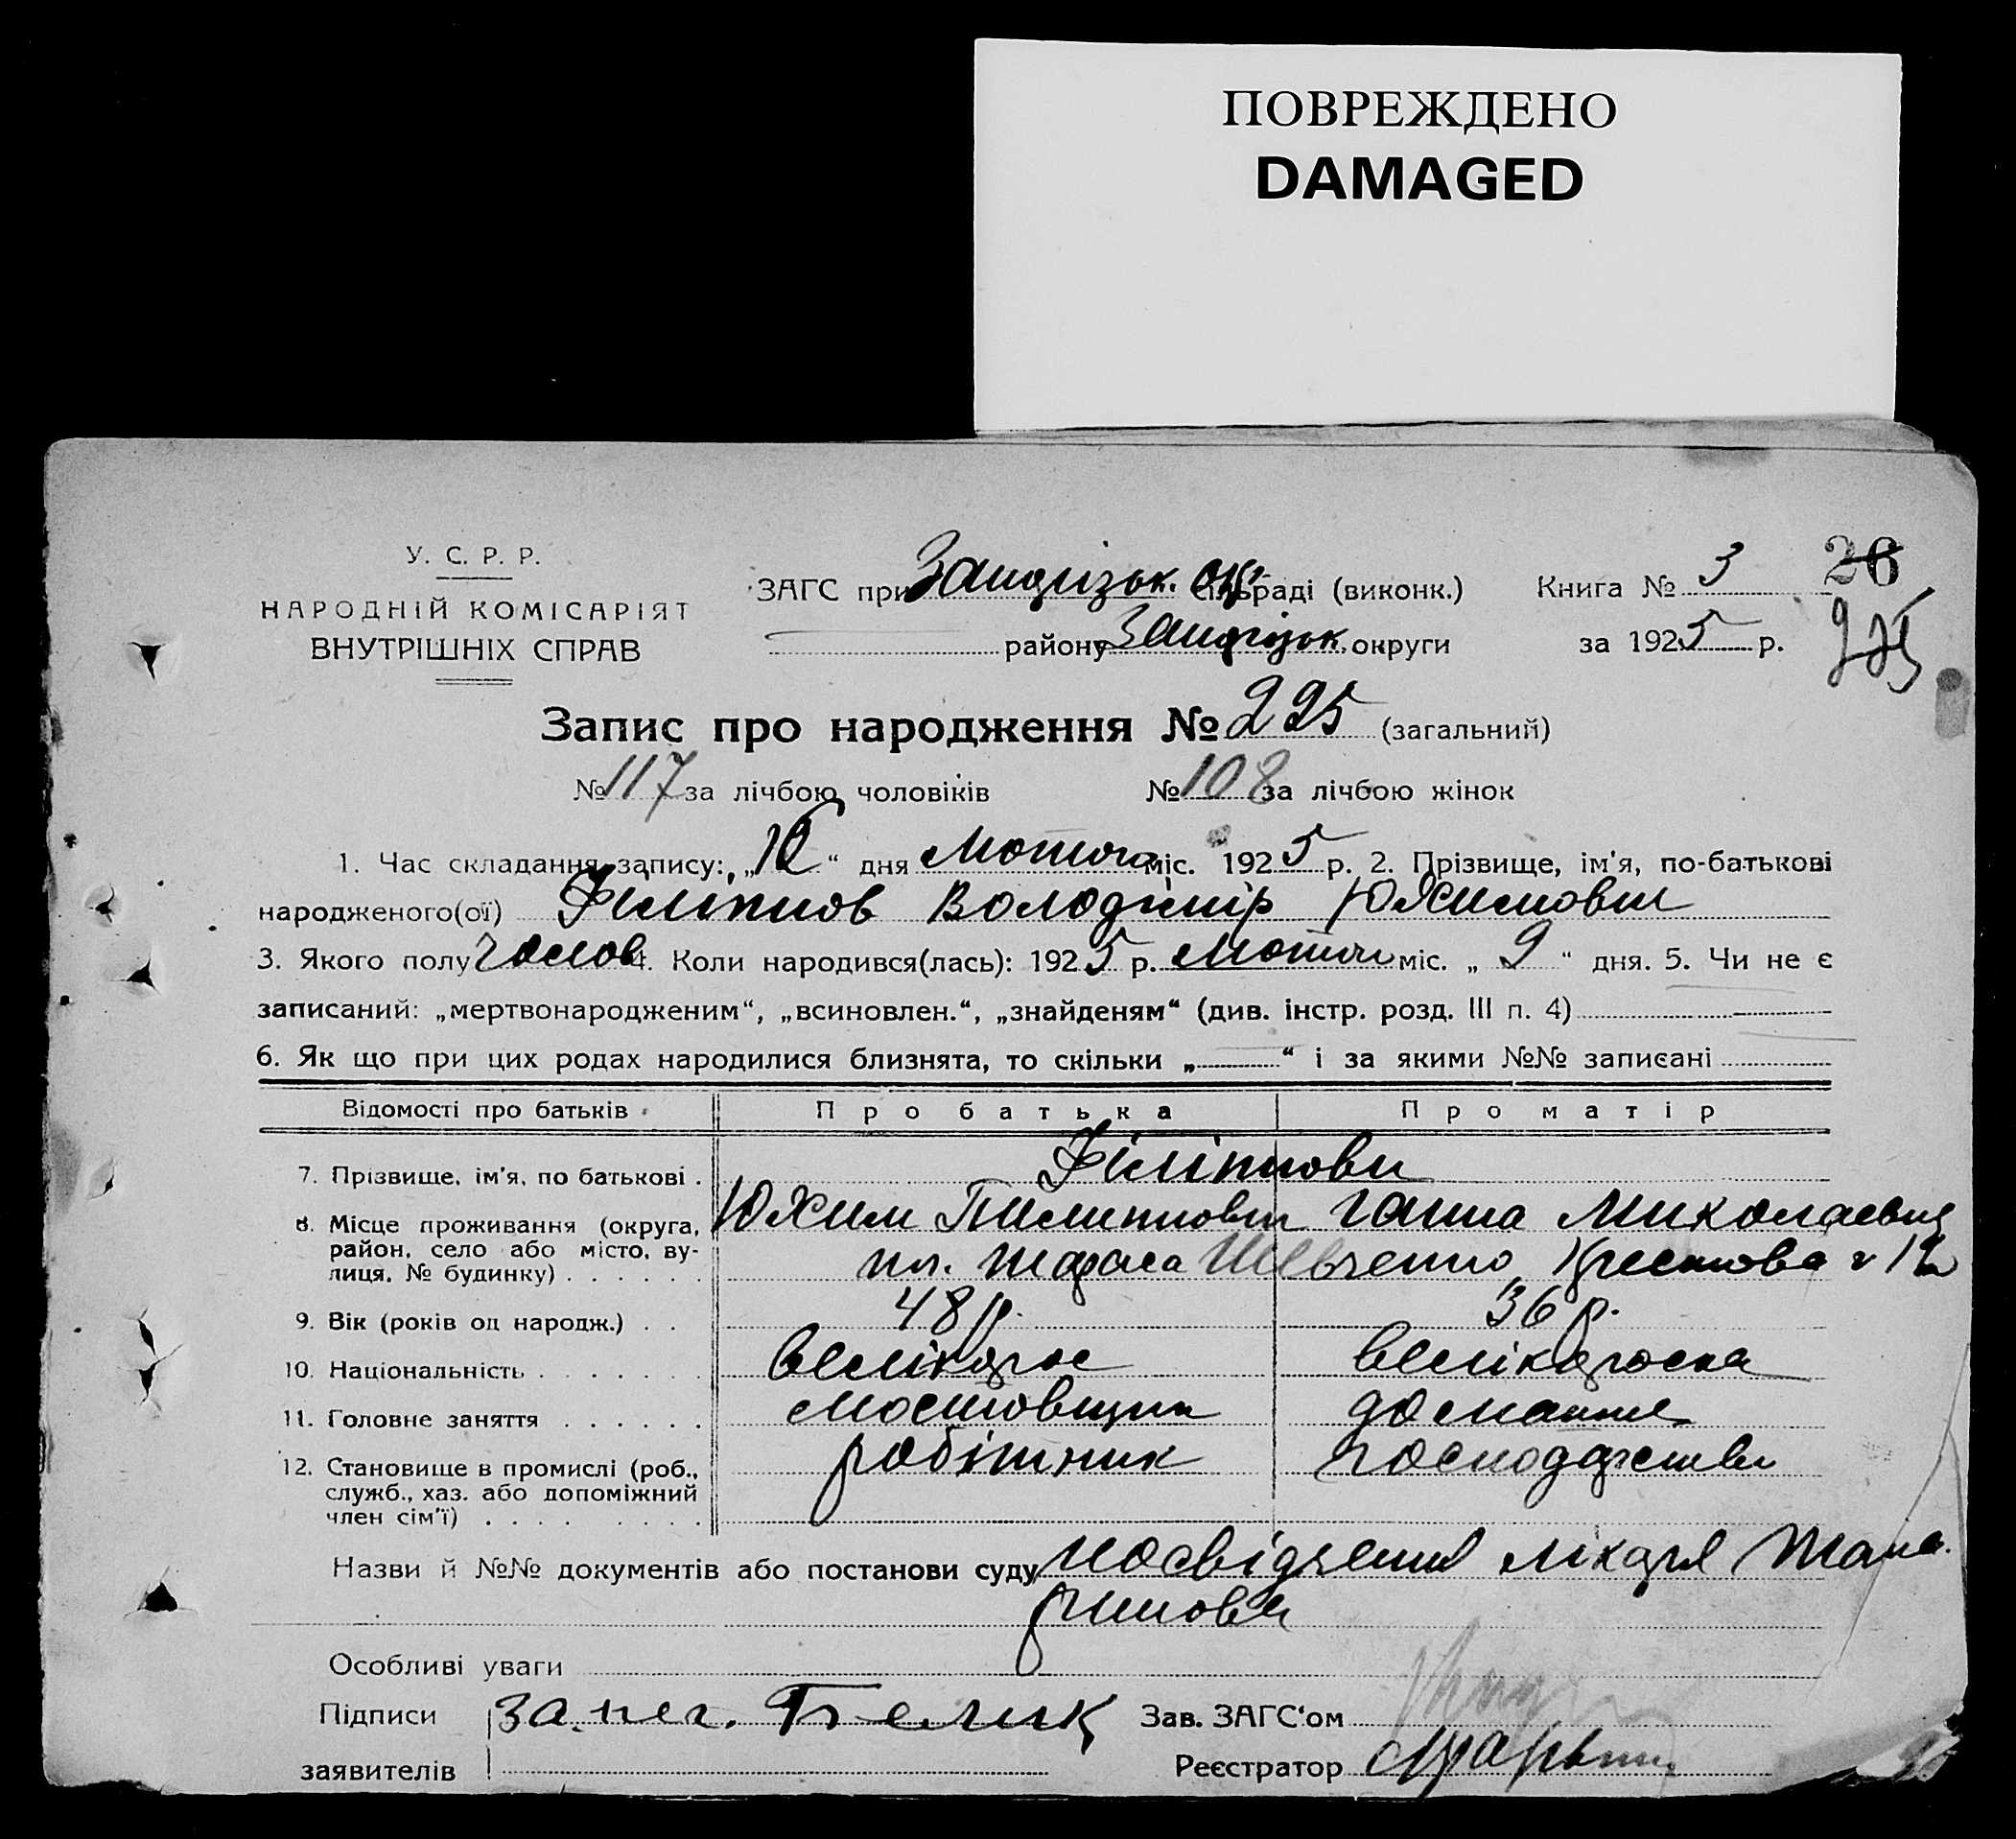 ПОВРЕЖДЕНО
DAMAGED
У. С. Р. Р.
НАРОДНІЙ КОМІСАРІЯТ
ВНУТРІШНІХ СПРАВ
ЗАГС при раді (виконк.)
району округи
Книга № 3
26
за 1925 р.
225
Запис про народження № 225 (загальний)
№ 117 за лічбою чоловіків № 108 за лічбою жінок
1. Час складання запису: „ “ дня міс. 1925 р. 2. Прізвище, ім'я, по-батькові
народженого(ої) Філіпов Володімір Юхимович
3. Якого полу чолов 4. Коли народився(лась): 1925 р. міс. „ 9 “ дня. 5. Чи не є
записаний: „мертвонародженим“, „всиновлен.“, „знайденям“ (див. інстр. розд. III п. 4)
6. Як що при цих родах народилися близнята, то скільки „ “ і за якими №№ записані
Відомості про батьків Про батька Про матір
7. Прізвище, ім'я, по батькові . Філіпови
Юхим Пилипович Ганна Миколаевна
8. Місце проживання (округа, район, село або місто, вулиця, № будинку) . . . . . . пл. Тараса Шевченко
9. Вік (років од народж.) . . 48 р. 36 р.
10. Національність . . . . . . . велікорос велікороска
11. Головне заняття . . . . . . мостовщик домашне
12. Становище в промислі (роб., служб., хаз. або допоміжний член сім'ї) . . . . . . . . робітник господарство
Назви й №№ документів або постанови суду посвідчення лікаря
Особливі уваги
Підписи Белик Зав. ЗАГС'ом
заявителів Реєстратор